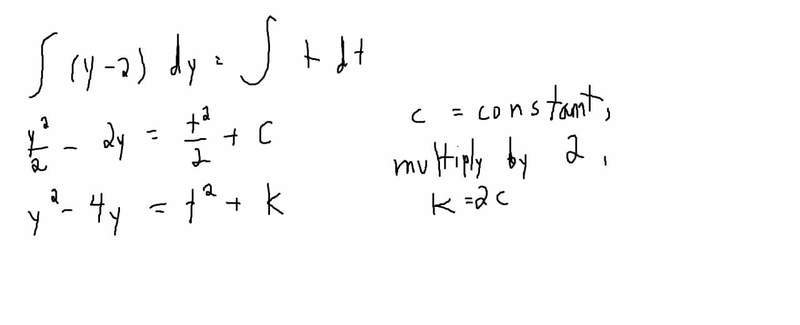 ∫ (y-2) dy = ∫ t dt
y²/2 - 2y = t²/2 + C
y² - 4y = t² + K
c = constant,
multiply by 2,
K = 2c